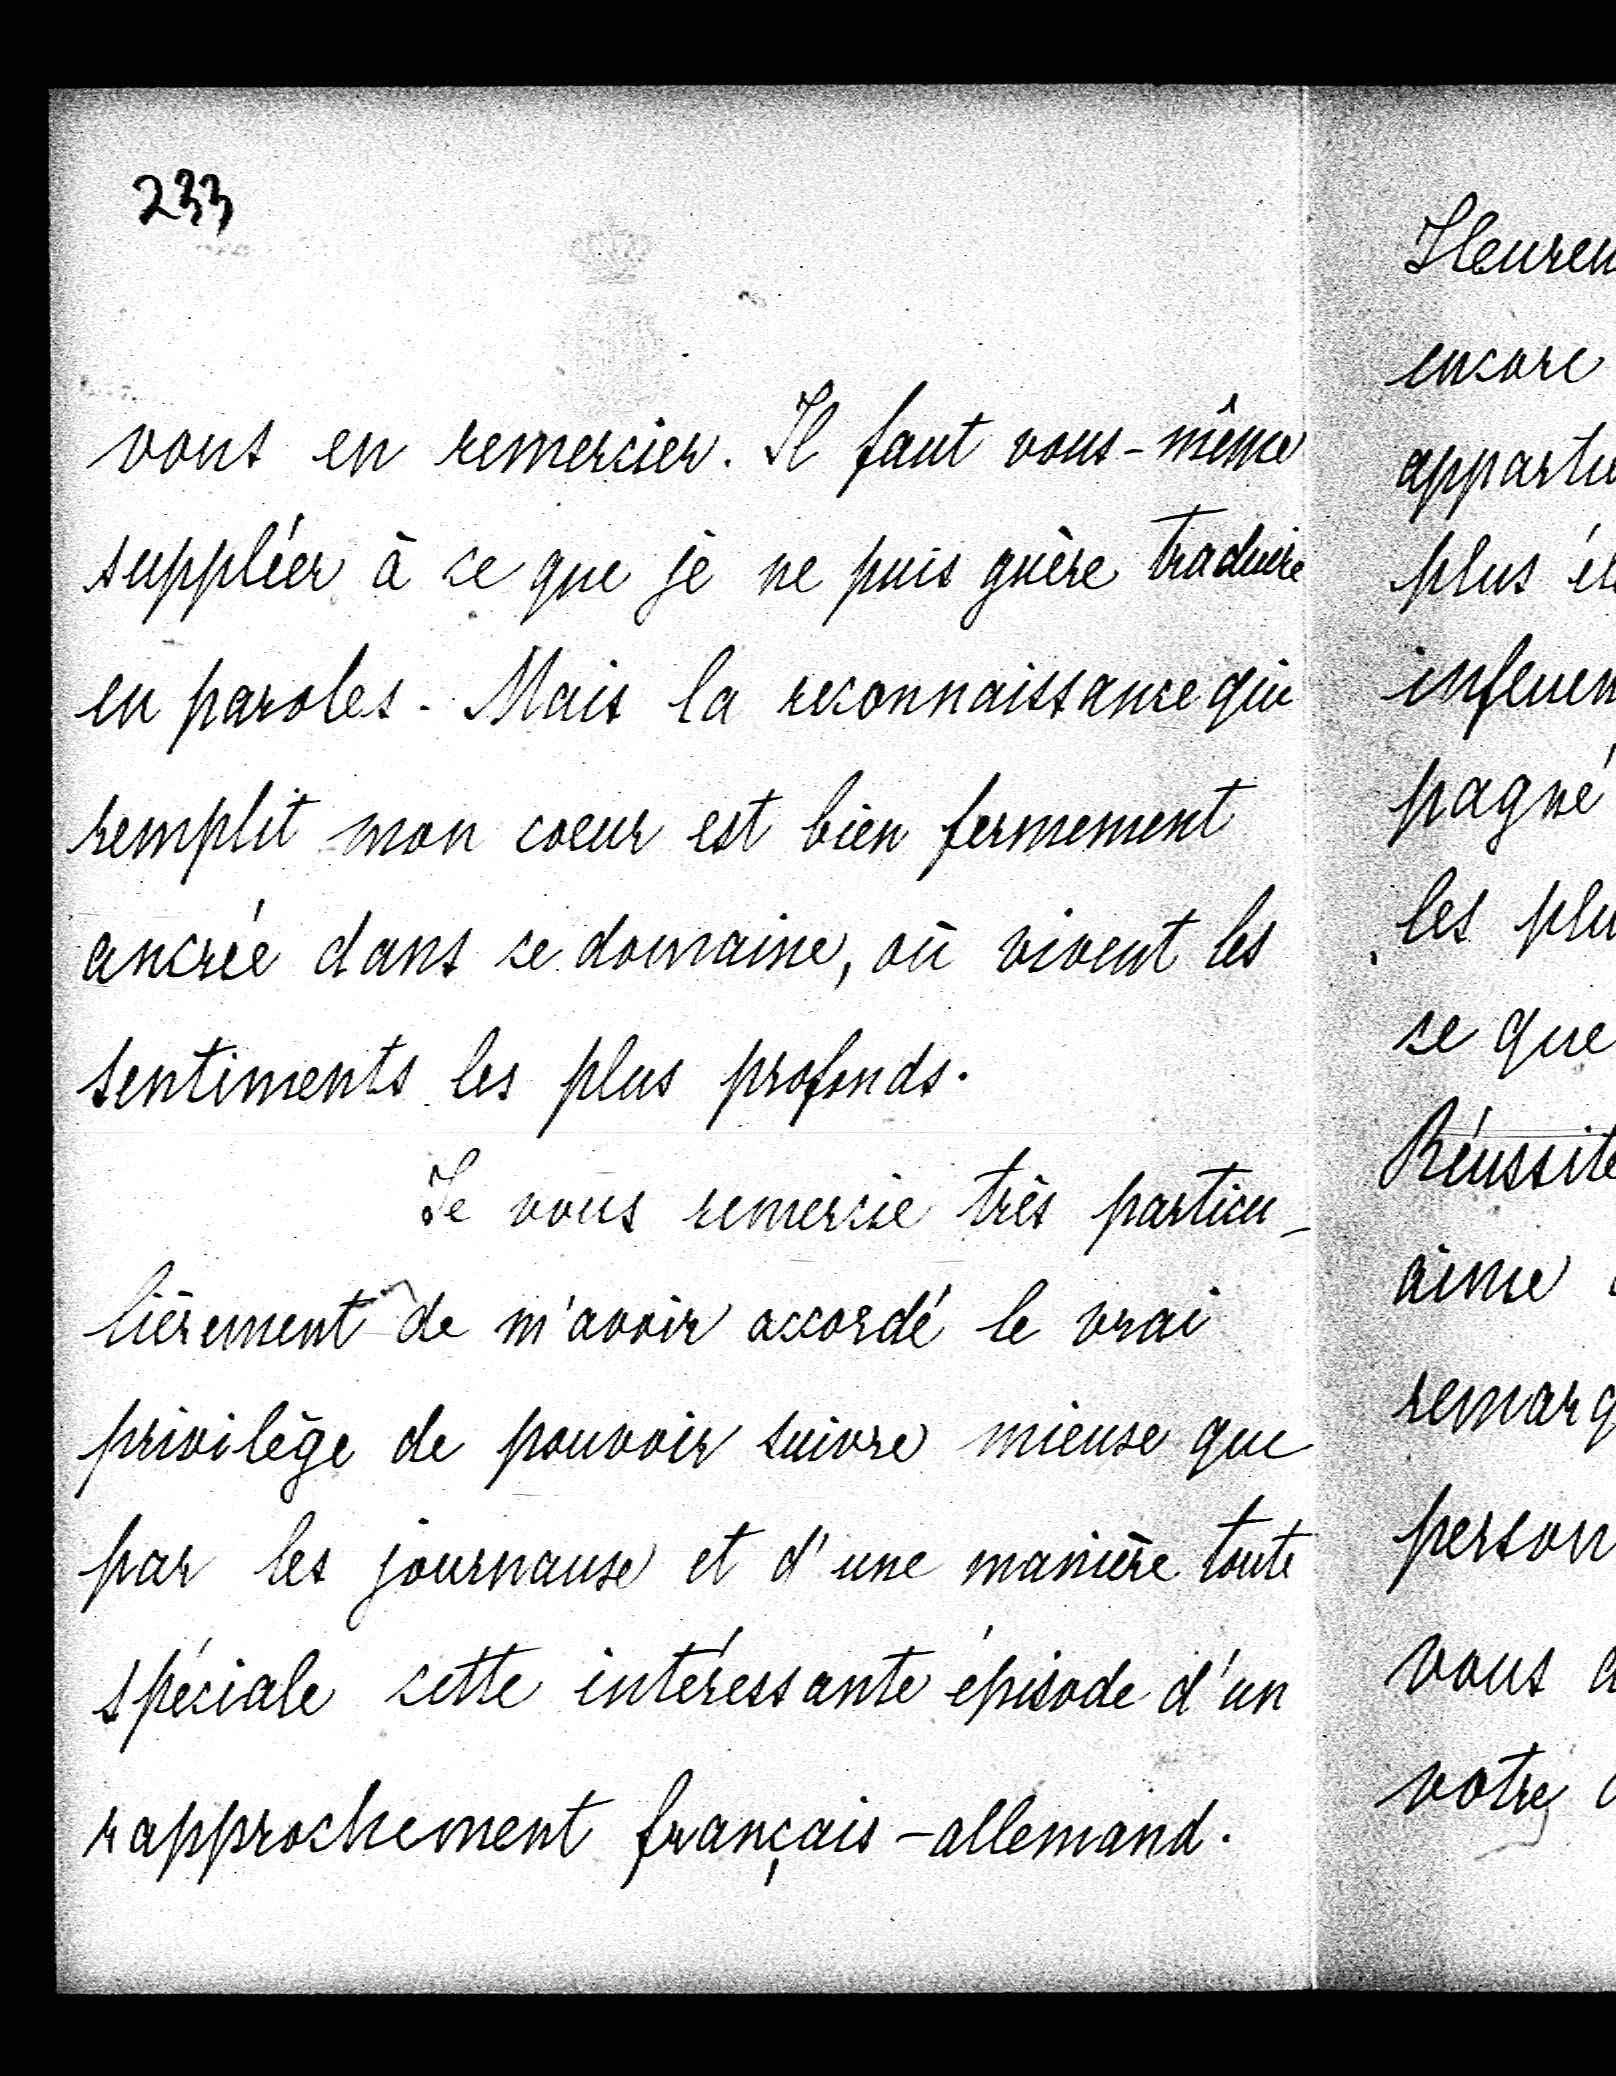 233
vous en remercier. Il faut vous-même
suppléer à ce que je ne puis guère traduire
en paroles. Mais la reconnaissance qui
remplit mon coeur est bien fermement
ancrée dans ce domaine, où vivent les
sentiments les plus profonds.
Je vous remercie très particu-
lièrement de m'avoir accordé le vrai
privilège de pouvoir suivre mieux que
par les journaux et d'une manière toute
spéciale cette intéressante épisode d'un
rapprochement français-allemand.
Heureu
encore
appartie
plus
influen
pagné
les plu
ce que
Réussite
aime
remarq
person
vous a
votre